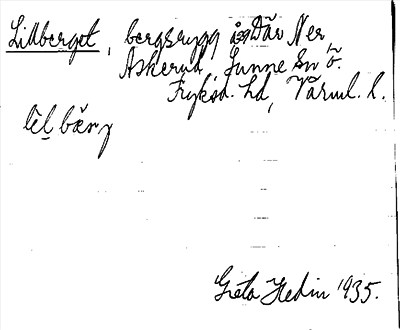 Lillberget, bergsrygg Där Ner
Askerud, Sunne sn Ö.
Fryksd. hd, Värml. l.
Greta Hedin 1935.